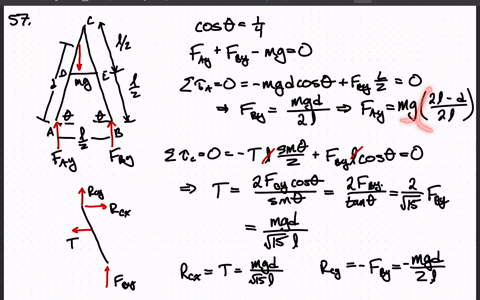 57.
C
l/2
d
D
E
mg
l/2
A
θ
θ
B
l/2
F_Ay
F_By
cosθ = 1/4
F_Ay + F_By - mg = 0
Στ_A = 0 = -mgd cosθ + F_By l/2 = 0
⇒ F_By = mgd/2l ⇒ F_Ay = mg(2l-d/2l)
Στ_C = 0 = -T l sinθ/2 + F_By l cosθ = 0
⇒ T = 2F_By cosθ/sinθ = 2F_By/tanθ = 2/√15 F_By
= mgd/√15 l
R_Cx = T = mgd/√15 l R_Cy = -F_By = -mgd/2l
R_Cy
R_Cx
T
F_By